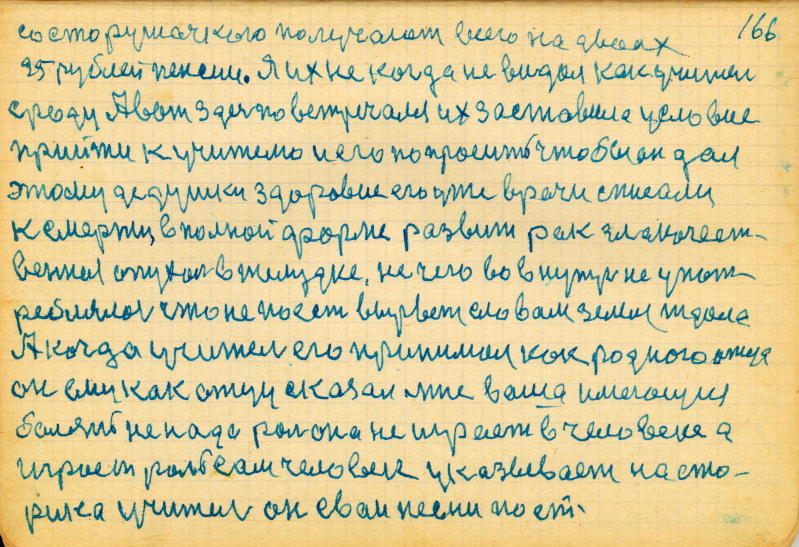 166
со старушачкого получают всего на двоих
25 рублей пенсии. Я их не когда не видал как учител
среду А вот здесь повстречался их заставила условие
прийти к учителю и его попросить чтобы он дал
этому дедушки здоровие его уже врачи списали
к смерти, в полной форме развит рак злакочест-
венная опухол в желудке, не чего во внутрь не упот-
реблялов что не поест вырвет словам земля ждала
А когда учител его принимал как родного отца
он ему как отцу сказал мне ваша имеющия
болять не нада рол она не играет в человеке а
играет роль сам человек указывает на ста-
рика учител он сваи песни поёт.